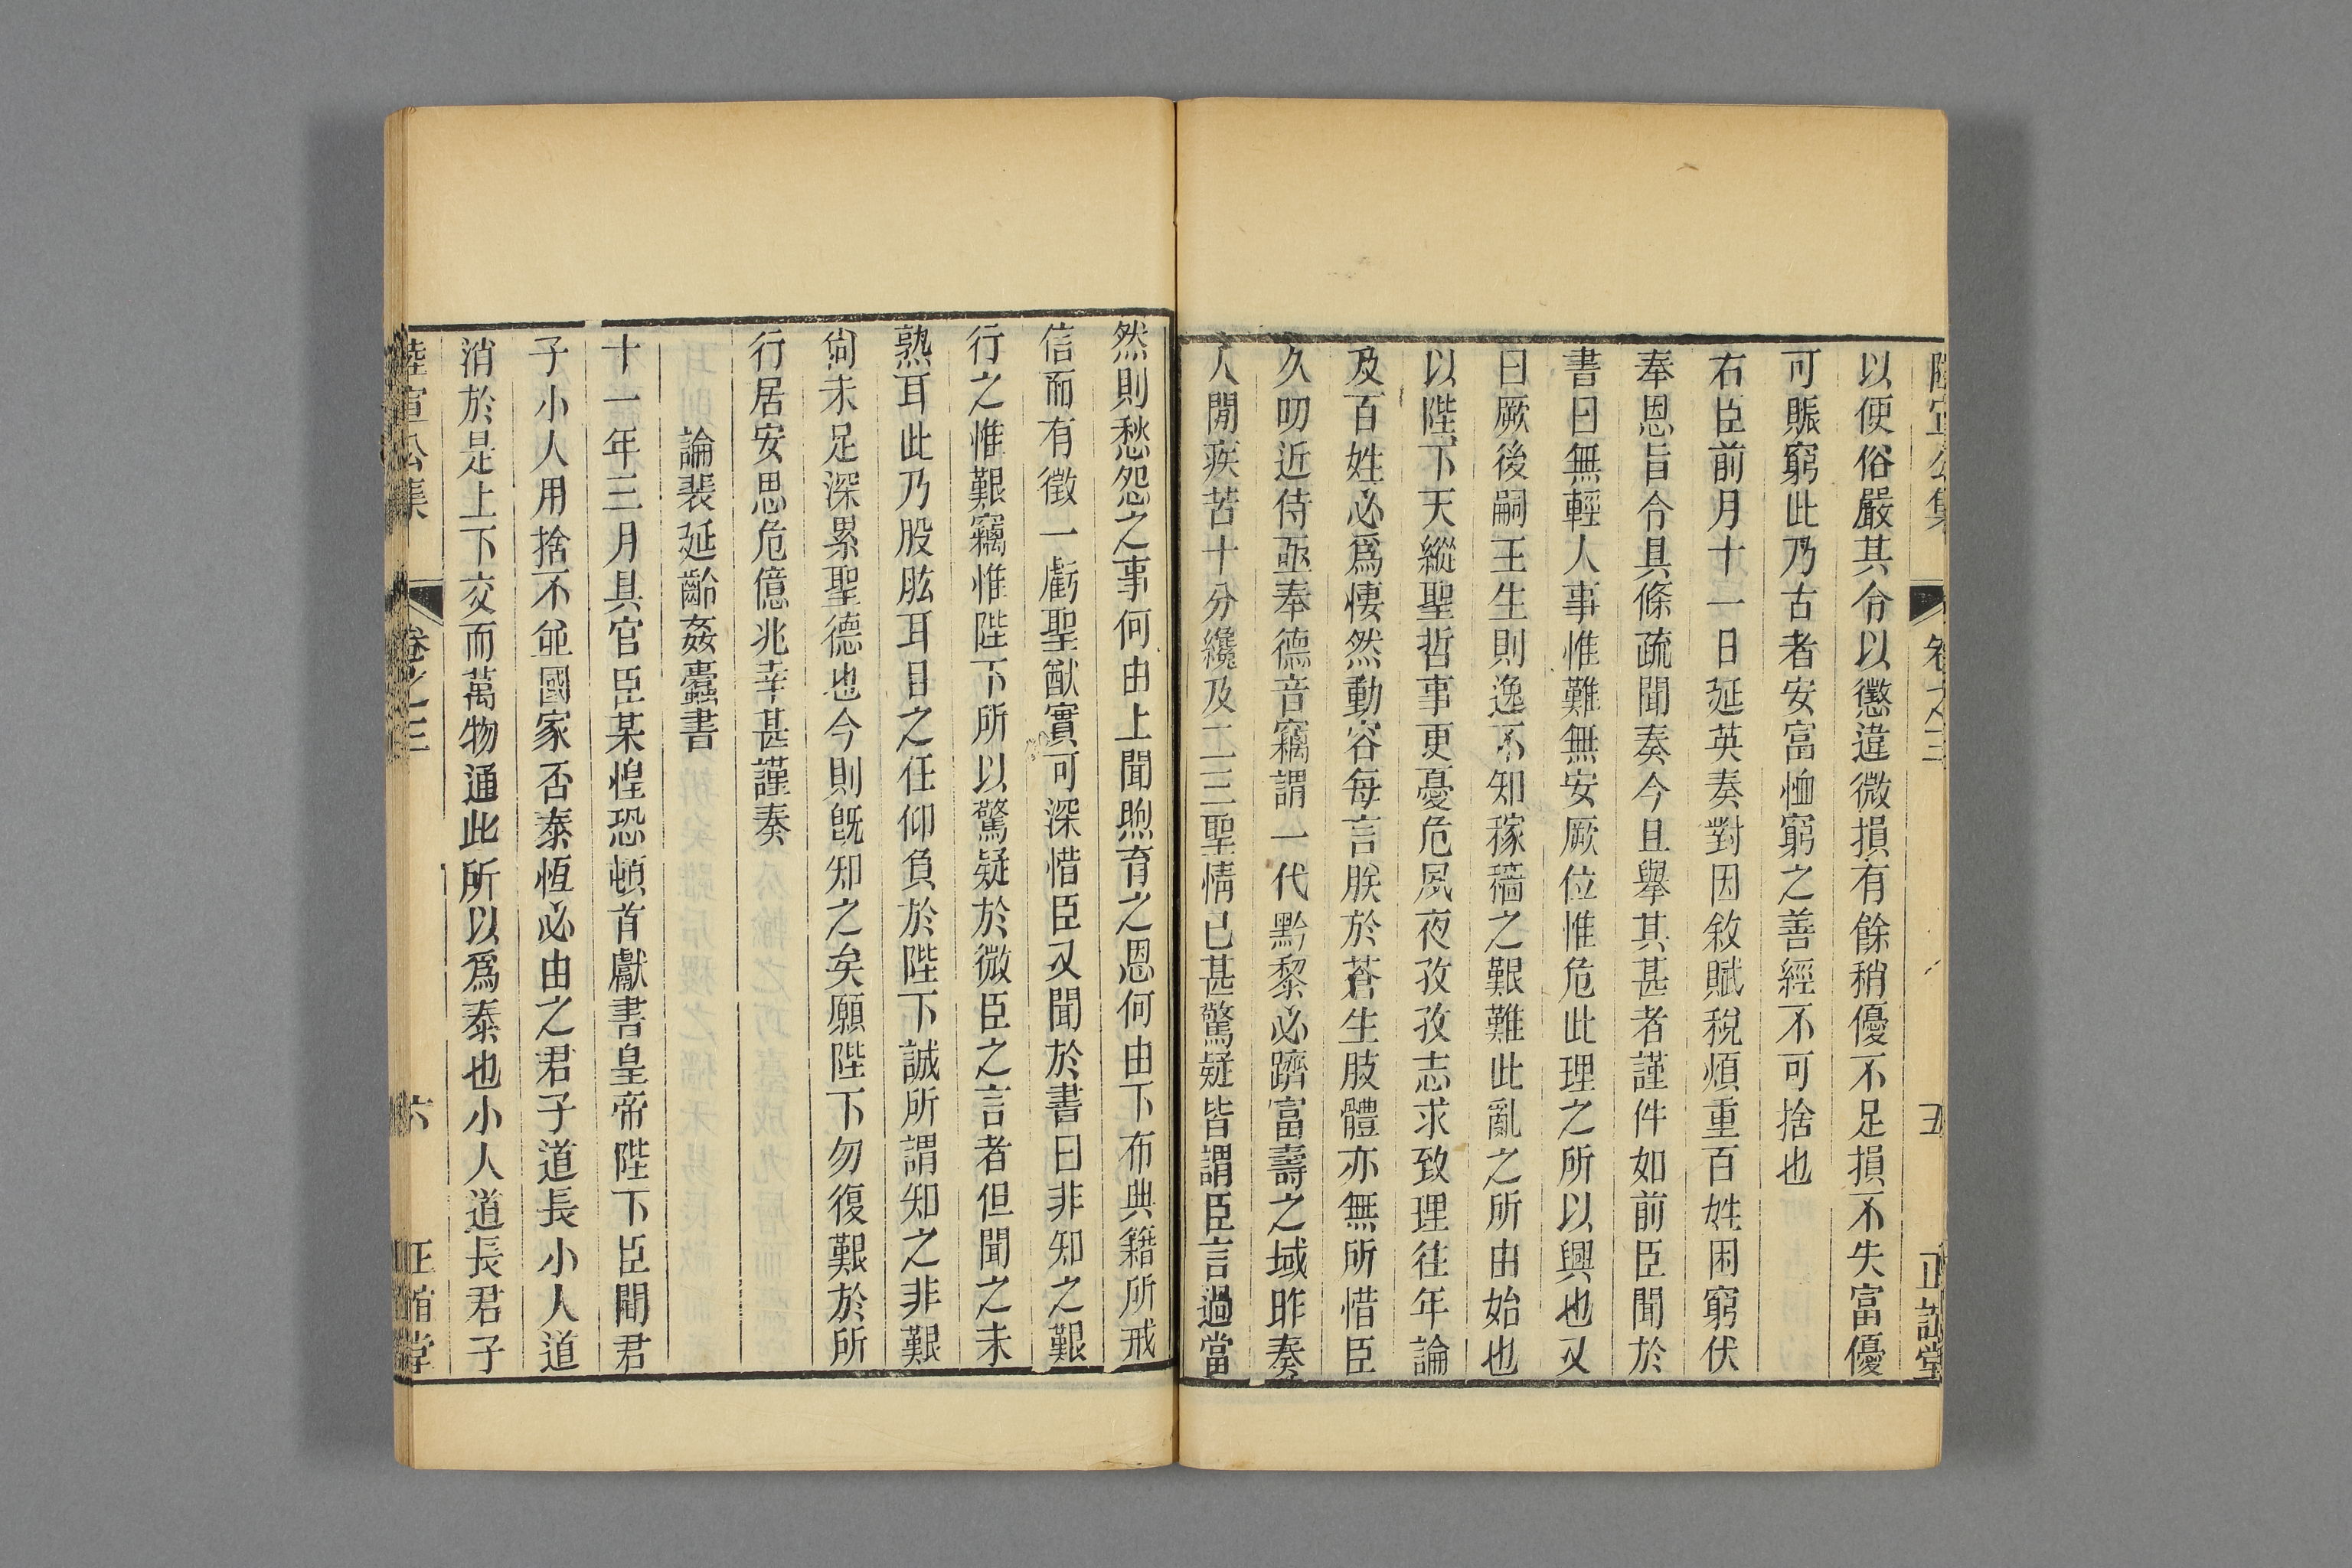 陸宣公集 卷之三 五 正誼堂
以便俗嚴其令以懲違微損有餘稍優不足損不失富優
可賑窮此乃古者安富恤窮之善經不可捨也
右臣前月十一日延英奏對因敘賦稅煩重百姓困窮伏
奉恩旨令具條疏聞奏今且舉其甚者謹件如前臣聞於
書曰無輕人事惟難無安厥位惟危此理之所以興也又
曰厥後嗣王生則逸不知稼穡之艱難此亂之所由始也
以陛下天縱聖哲事更憂危夙夜孜孜志求致理往年論
及百姓必爲悽然動容每言朕於蒼生肢體亦無所惜臣
久叨近侍亟奉德音竊謂一代黔黎必躋富壽之域昨奏
人閒疾苦十分纔及二三聖情已甚驚疑皆謂臣言過當
然則愁怨之事何由上聞煦育之恩何由下布典籍所戒
信而有徵一虧聖猷實可深惜臣又聞於書曰非知之艱
行之惟艱竊惟陛下所以驚疑於微臣之言者但聞之未
熟耳此乃股肱耳目之任仰負於陛下誠所謂知之非艱
尙未足深累聖德也今則旣知之矣願陛下勿復艱於所
行居安思危億兆幸甚謹奏
論裴延齡姦蠹書
十一年三月具官臣某惶恐頓首獻書皇帝陛下臣聞君
子小人用捨不竝國家否泰恆必由之君子道長小人道
消於是上下交而萬物通此所以爲泰也小人道長君子
陸宣公集 卷之三 六 正誼堂